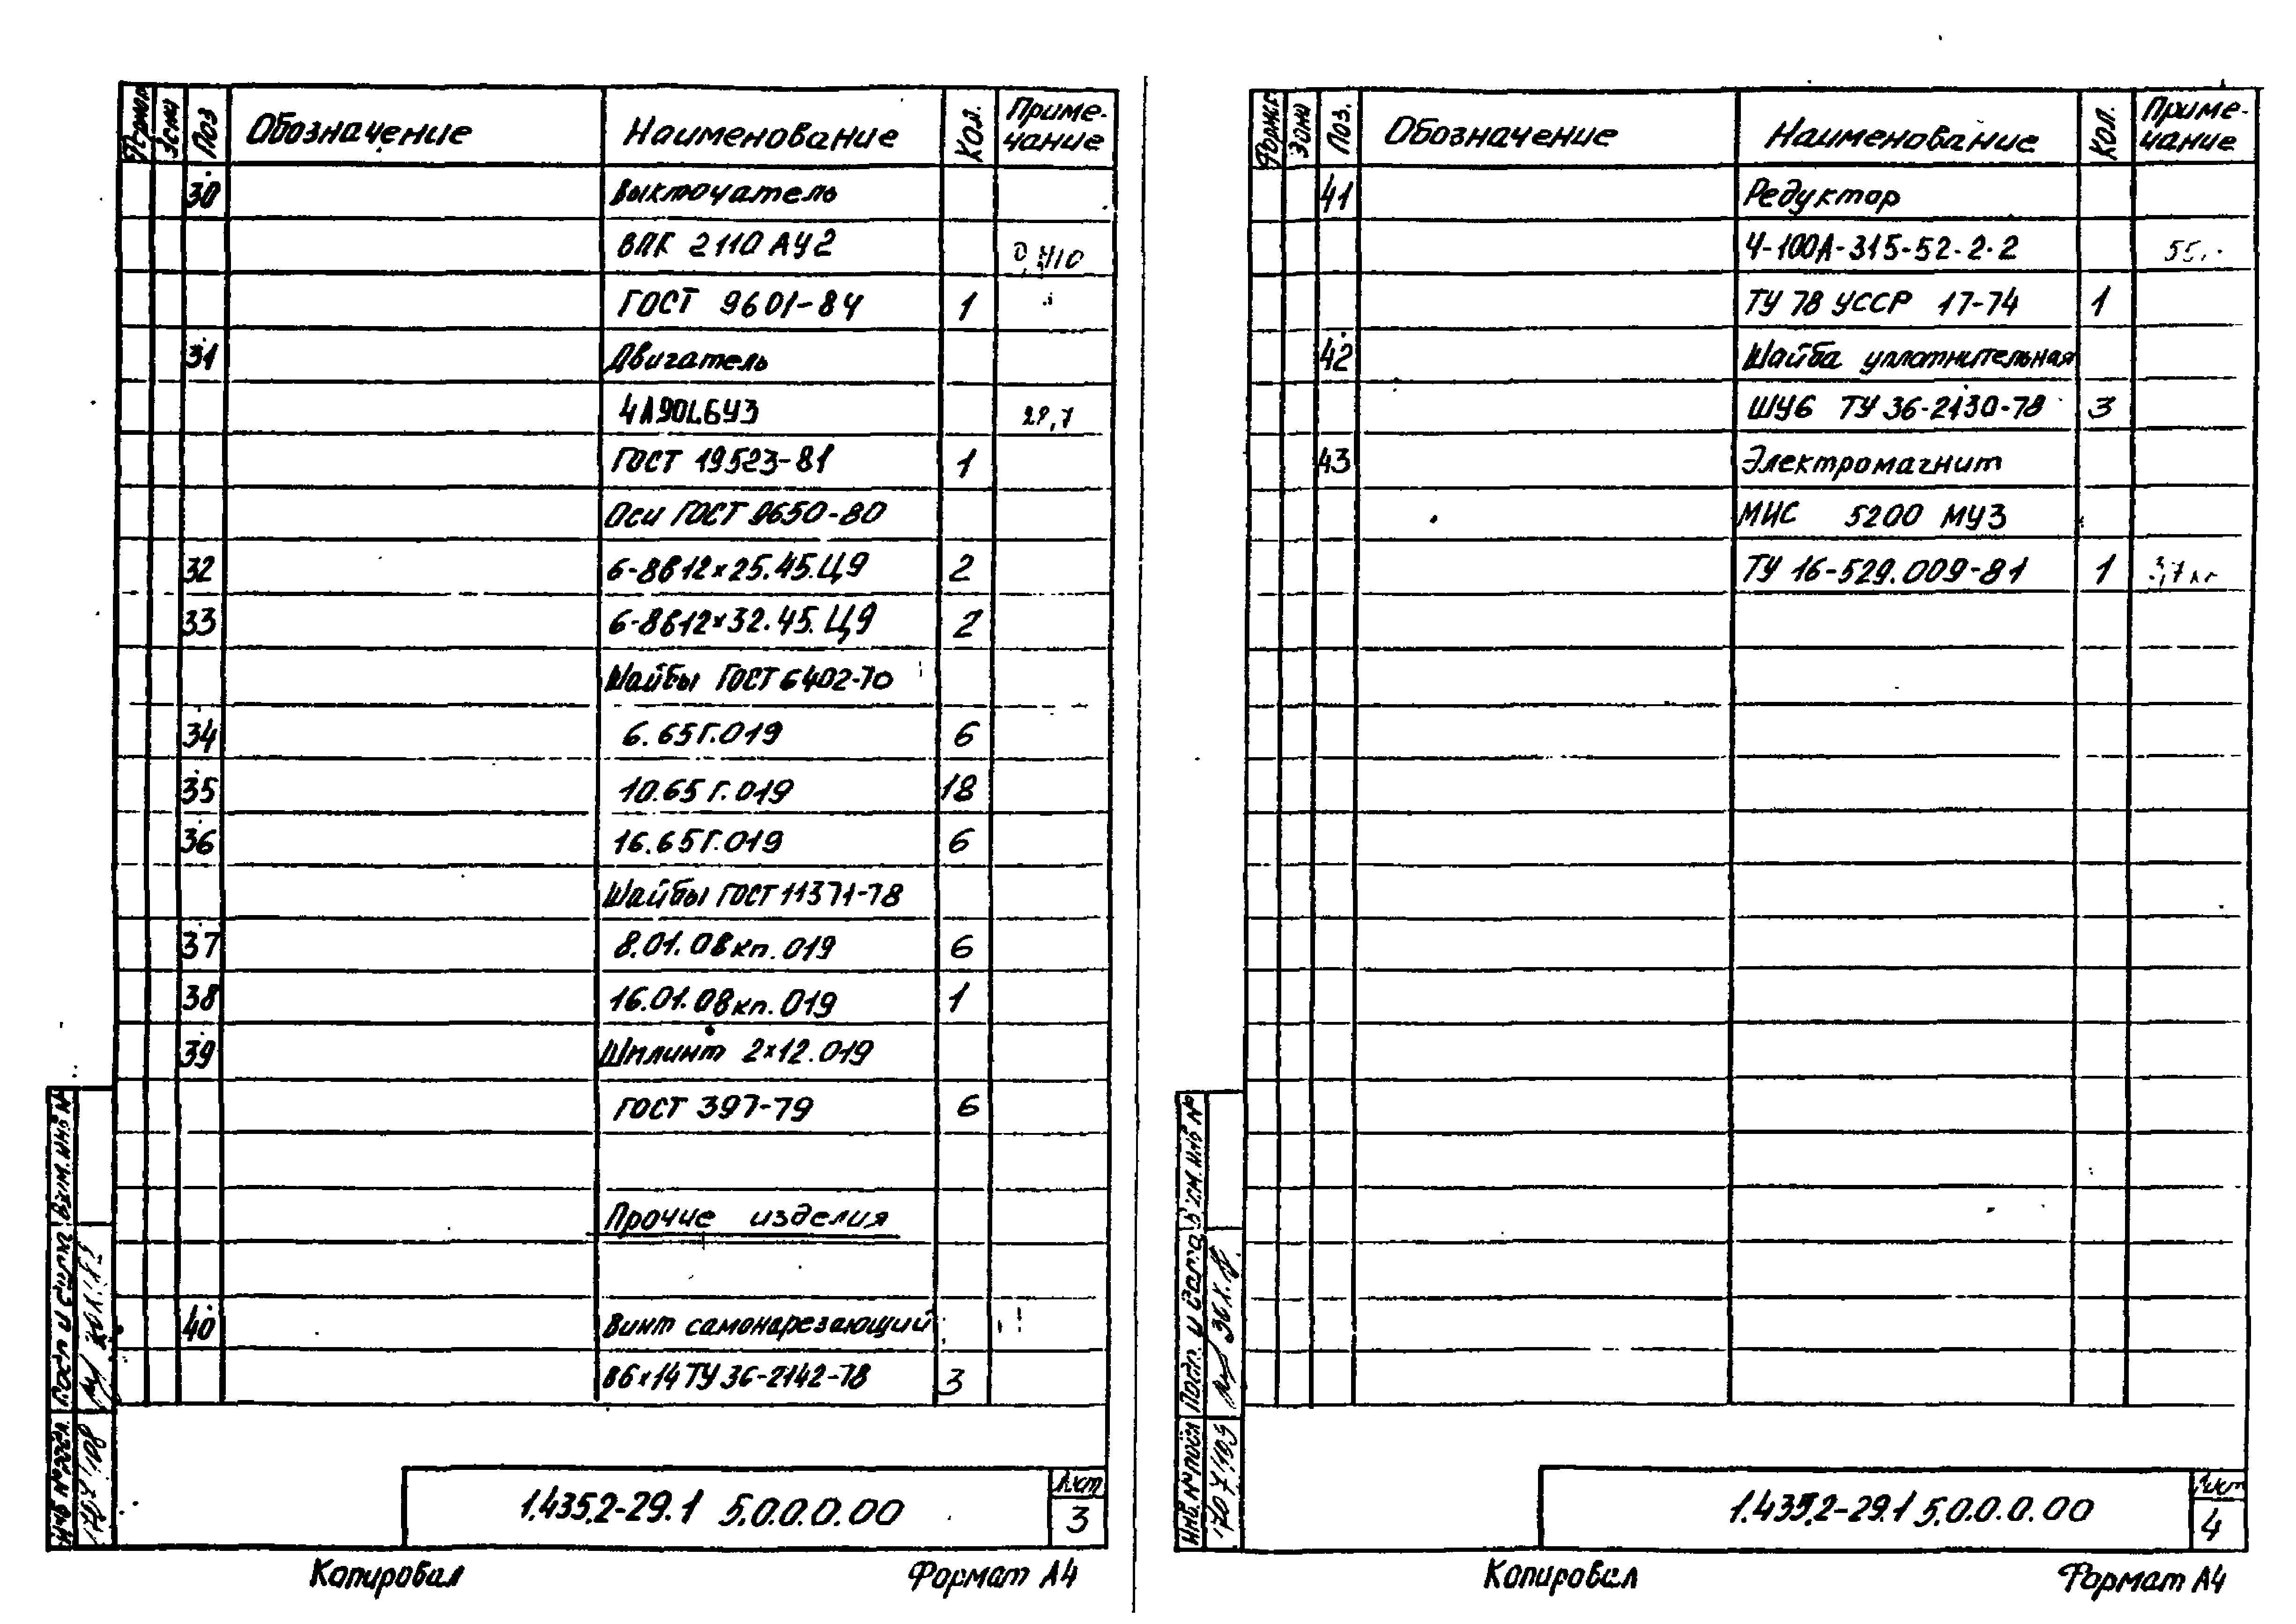 Формат Зона Поз Обозначение Наименование Кол. Приме-
чание
30 Выключатель
ВПК 2110 АУ2
ГОСТ 9601-84 1
31 Двигатель
4А90L6У3 28,7
ГОСТ 19523-81 1
Оси ГОСТ 9650-80
32 6-8в12×25.45.Ц9 2
33 6-8в12×32.45.Ц9 2
Шайбы ГОСТ 6402-70
34 6.65Г.019 6
35 10.65Г.019 18
36 16.65Г.019 6
Шайбы ГОСТ 11371-78
37 8.01.08кп.019 6
38 16.01.08кп.019 1
39 Шплинт 2×12.019
ГОСТ 397-79 6
Прочие изделия
40 Винт самонарезающий
В6×14 ТУ 36-2142-78 3
Инв № подл. Подп и дата Взам. инв №
1.435.2-29.1 5.0.0.0.00
Лист
3
Копировал Формат А4
Формат Зона Поз. Обозначение Наименование Кол. Приме-
чание
41 Редуктор
Ч-100А-315-52-2-2
ТУ 78 УССР 17-74 1
42 Шайба уплотнительная
ШУ6 ТУ 36-2130-78 3
43 Электромагнит
МИС 5200 МУ3
ТУ 16-529.009-81 1 3,7 кг
Инв. № подл Подп. и дата Взам. инв №
1.435.2-29.1 5.0.0.0.00
Лист
4
Копировал Формат А4